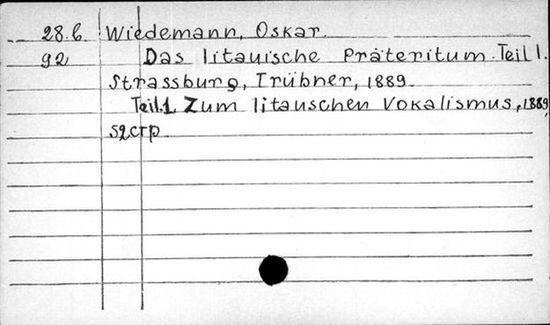 28.6. Wiedemann, Oskar.
92 Das litauische Präteritum. Teil 1.
Strassburg, Trübner, 1889.
Teil 1. Zum litauschen Vokalismus, 1889,
52стр